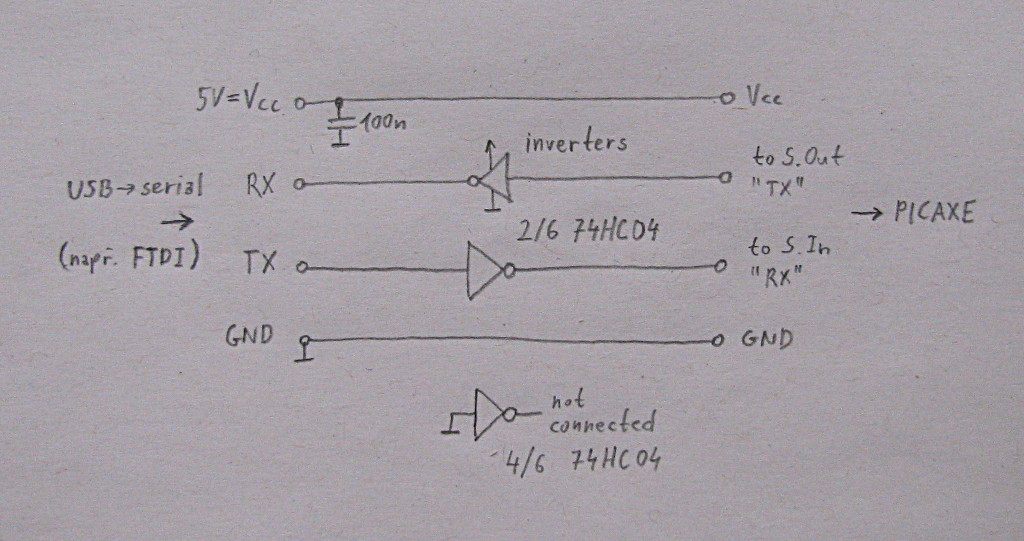 5V=Vcc
Vcc
100n
inverters
to S.Out
"TX"
USB→serial
RX
→ PICAXE
→
2/6 74HC04
(napr. FTDI)
TX
to S.In
"RX"
GND
GND
not
connected
4/6 74HC04